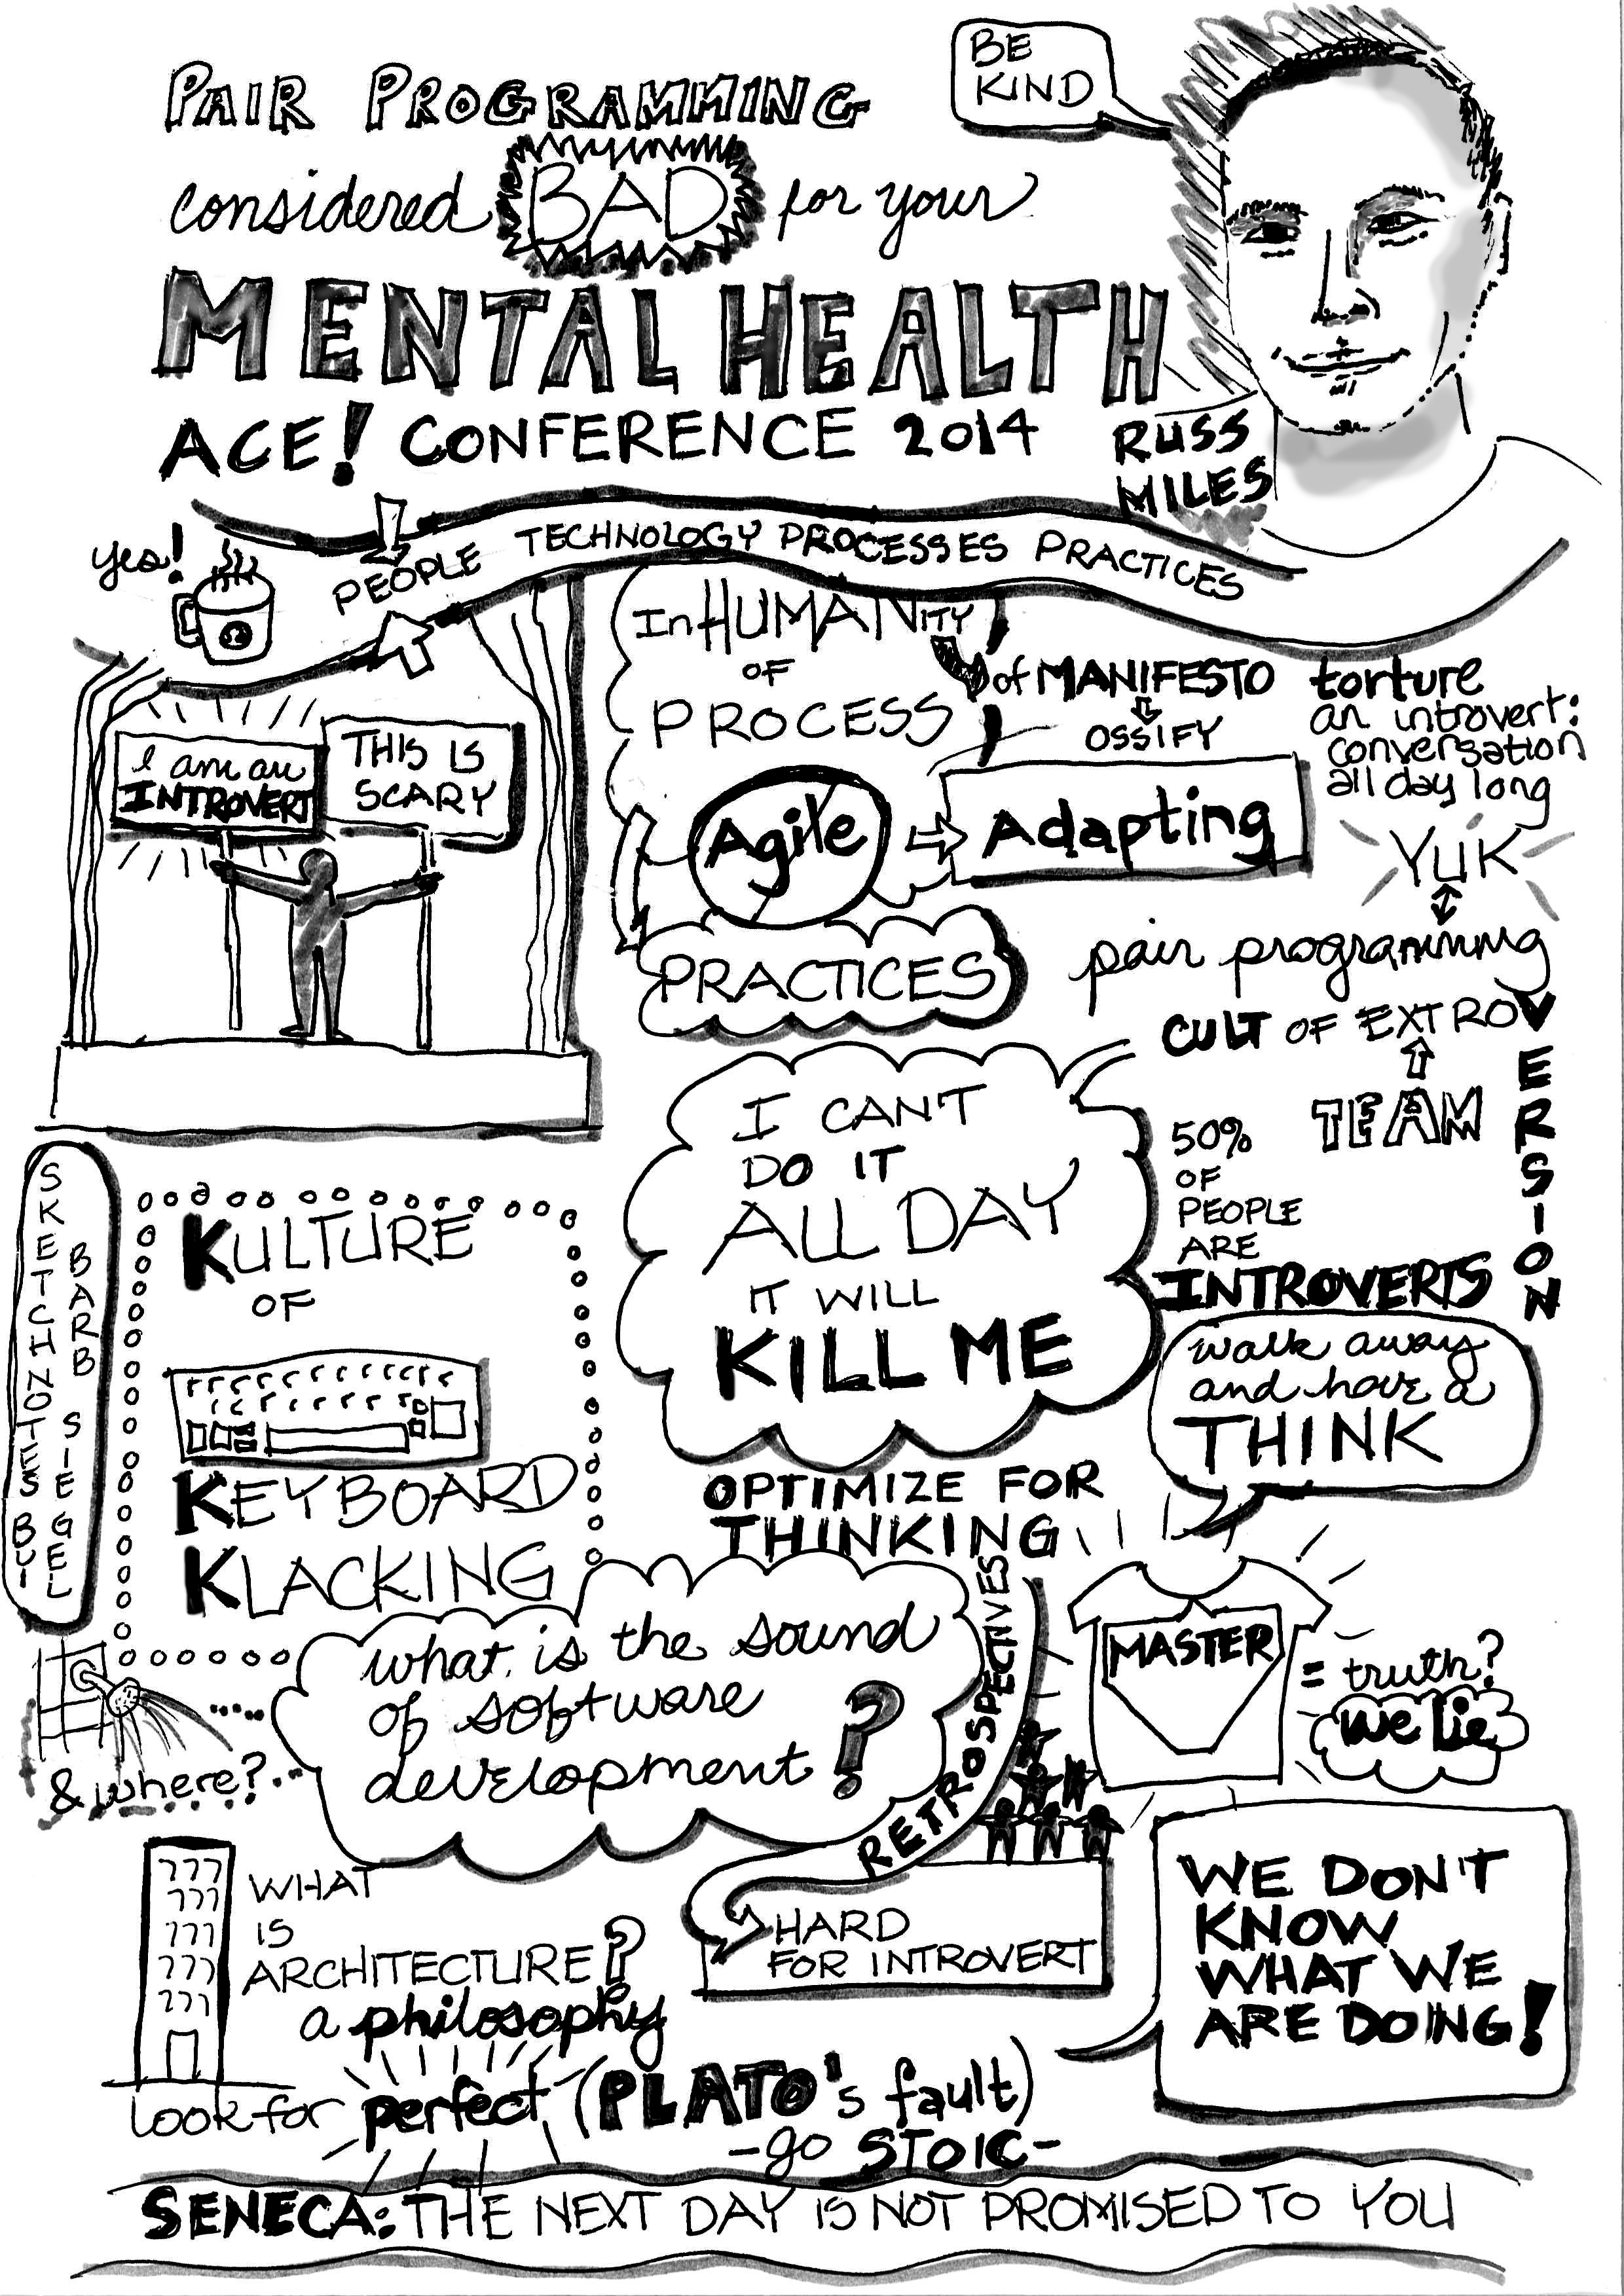 PAIR PROGRAMMING
considered BAD for your
MENTAL HEALTH
ACE! CONFERENCE 2014
BE
KIND
RUSS
MILES
PEOPLE TECHNOLOGY PROCESSES PRACTICES
yes!
I am an
INTROVERT
THIS IS
SCARY
InHUMANITY
OF
PROCESS
of MANIFESTO
OSSIFY
Agile
Adapting
PRACTICES
torture
an introvert:
conversation
all day long
YUK
pair programming
CULT OF EXTROVERSION
TEAM
50%
OF
PEOPLE
ARE
INTROVERTS
I CAN'T
DO IT
ALL DAY
IT WILL
KILL ME
walk away
and have a
THINK
SKETCHNOTES BY
BARB SIEGEL
KULTURE
OF
KEYBOARD
KLACKING
OPTIMIZE FOR
THINKING
what is the sound
of software
development?
& where?...
RETROSPECTIVES
HARD
FOR INTROVERT
MASTER
= truth?
we lie
WE DON'T
KNOW
WHAT WE
ARE DOING!
???
???
???
???
???
WHAT
IS
ARCHITECTURE?
a philosophy
look for perfect (PLATO's fault)
-go STOIC-
SENECA: THE NEXT DAY IS NOT PROMISED TO YOU